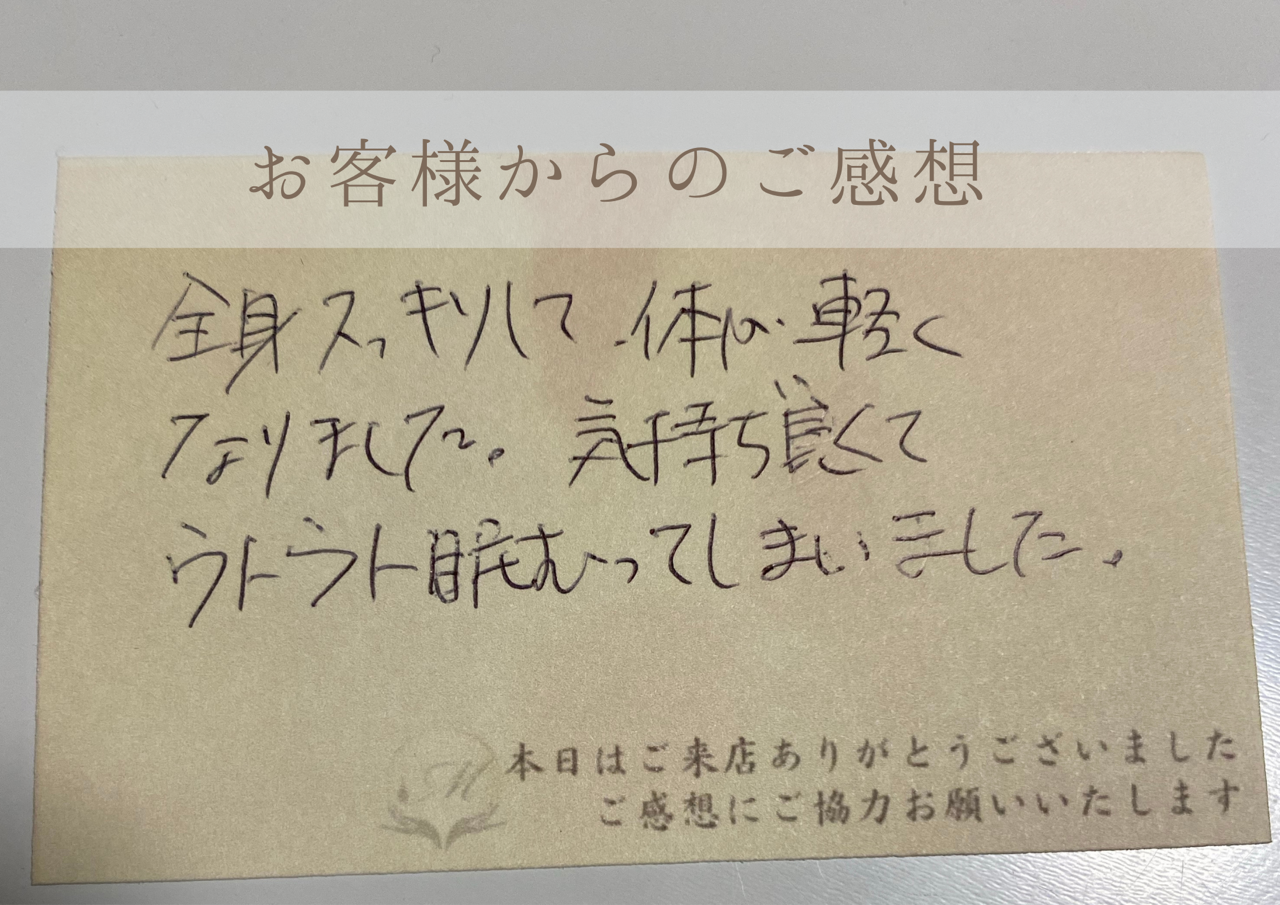 お客様からのご感想
全身スッキリして、体が軽く
なりました。気持ち良くて
ウトウト眠むってしまいました。
M
本日はご来店ありがとうございました
ご感想にご協力お願いいたします